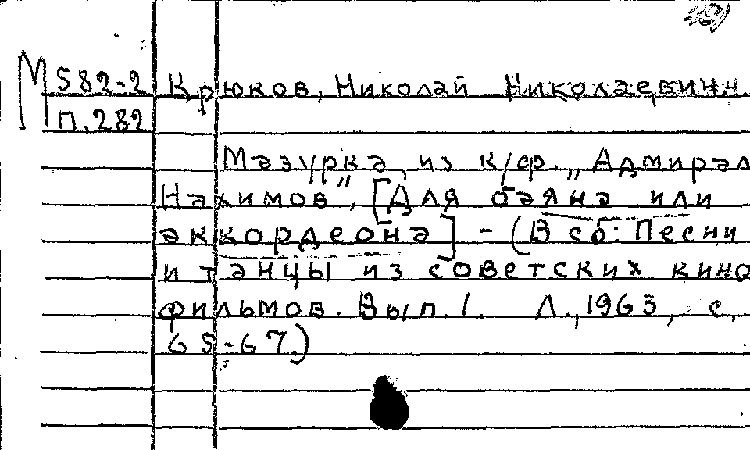 М 582-2 Крюков, Николай Николаевич.
П. 282
Мазурка из к/ф. „Адмирал
Нахимов", [Для баяна или
аккордеона] - (В сб: Песни
и танцы из советских кино
фильмов. Вып. 1. Л., 1963, с.
65-67.)